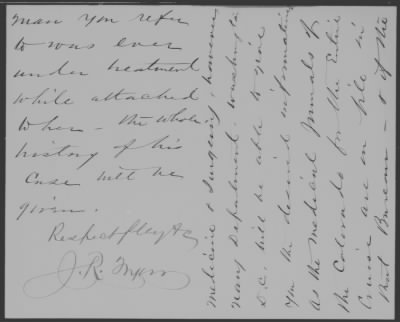 man you refer
to was ever
under treatment
while attached
to her - the whole
history of his
case will be
given.
Respectfully &c
J. R. Tryon
Medicine & Surgery, however
Navy Department, Washington
D.C. will be able to give
you the desired information
as the Medical Journals of
the Colorado for the Entire
Cruise are on file in
that Bureau - & if the